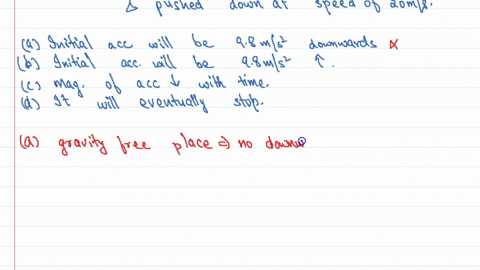 & pushed down at speed of 20m/s.
(a) Initial acc will be 9.8m/s² downwards ×
(b) Initial acc. will be 9.8m/s² ↑.
(c) mag. of acc ↓ with time.
(d) It will eventually stop.
(a) gravity free place ⇒ no down